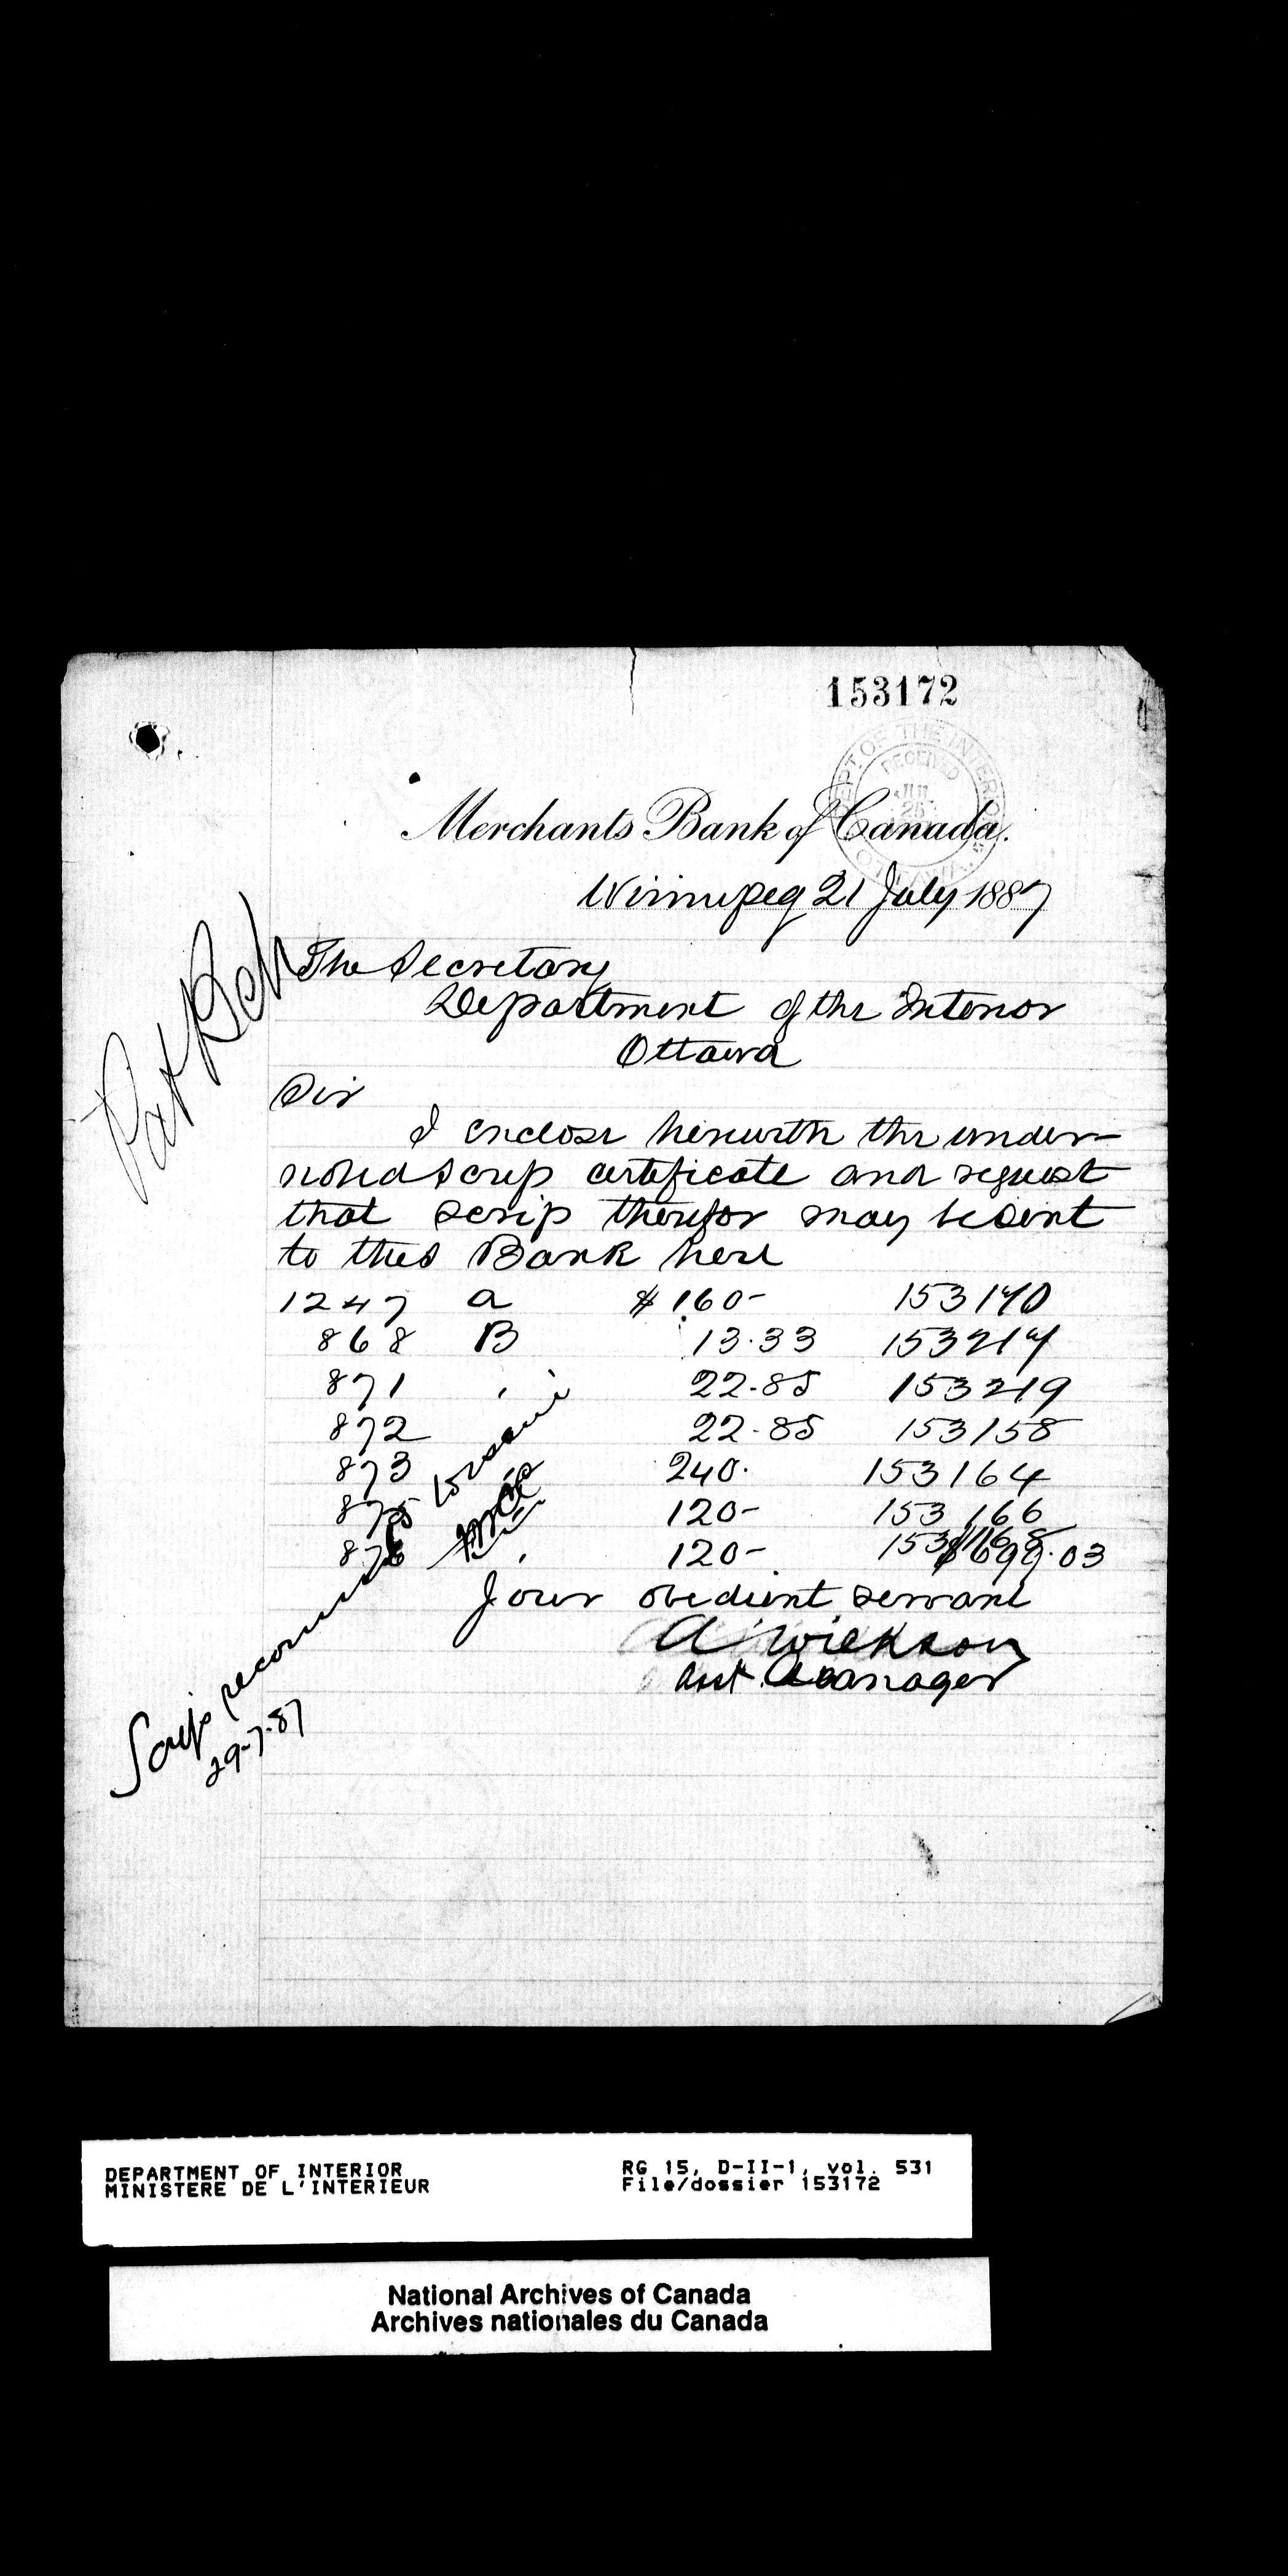 153172
DEPT. OF THE INTERIOR
RECEIVED
JUL
25
OTTAWA
Merchants Bank of Canada.
Winnipeg 21 July 1887
Pat Bch
The Secretary
Department of the Interior
Ottawa
Sir
I enclose herewith the under-
noted scrip certificate and request
that scrip therefor may be sent
to this Bank here
1247 a $160- 153170
868 B 13.33 153217
871 " 22.85 153219
872 22.85 153158
873 240. 153164
875 120- 153166
876 120- 153168
$699.03
Your obedient servant
A Wickson
Asst. Manager
Scrip
29-7-87
DEPARTMENT OF INTERIOR
MINISTERE DE L'INTERIEUR
RG 15, D-II-1, vol. 531
File/dossier 153172
National Archives of Canada
Archives nationales du Canada